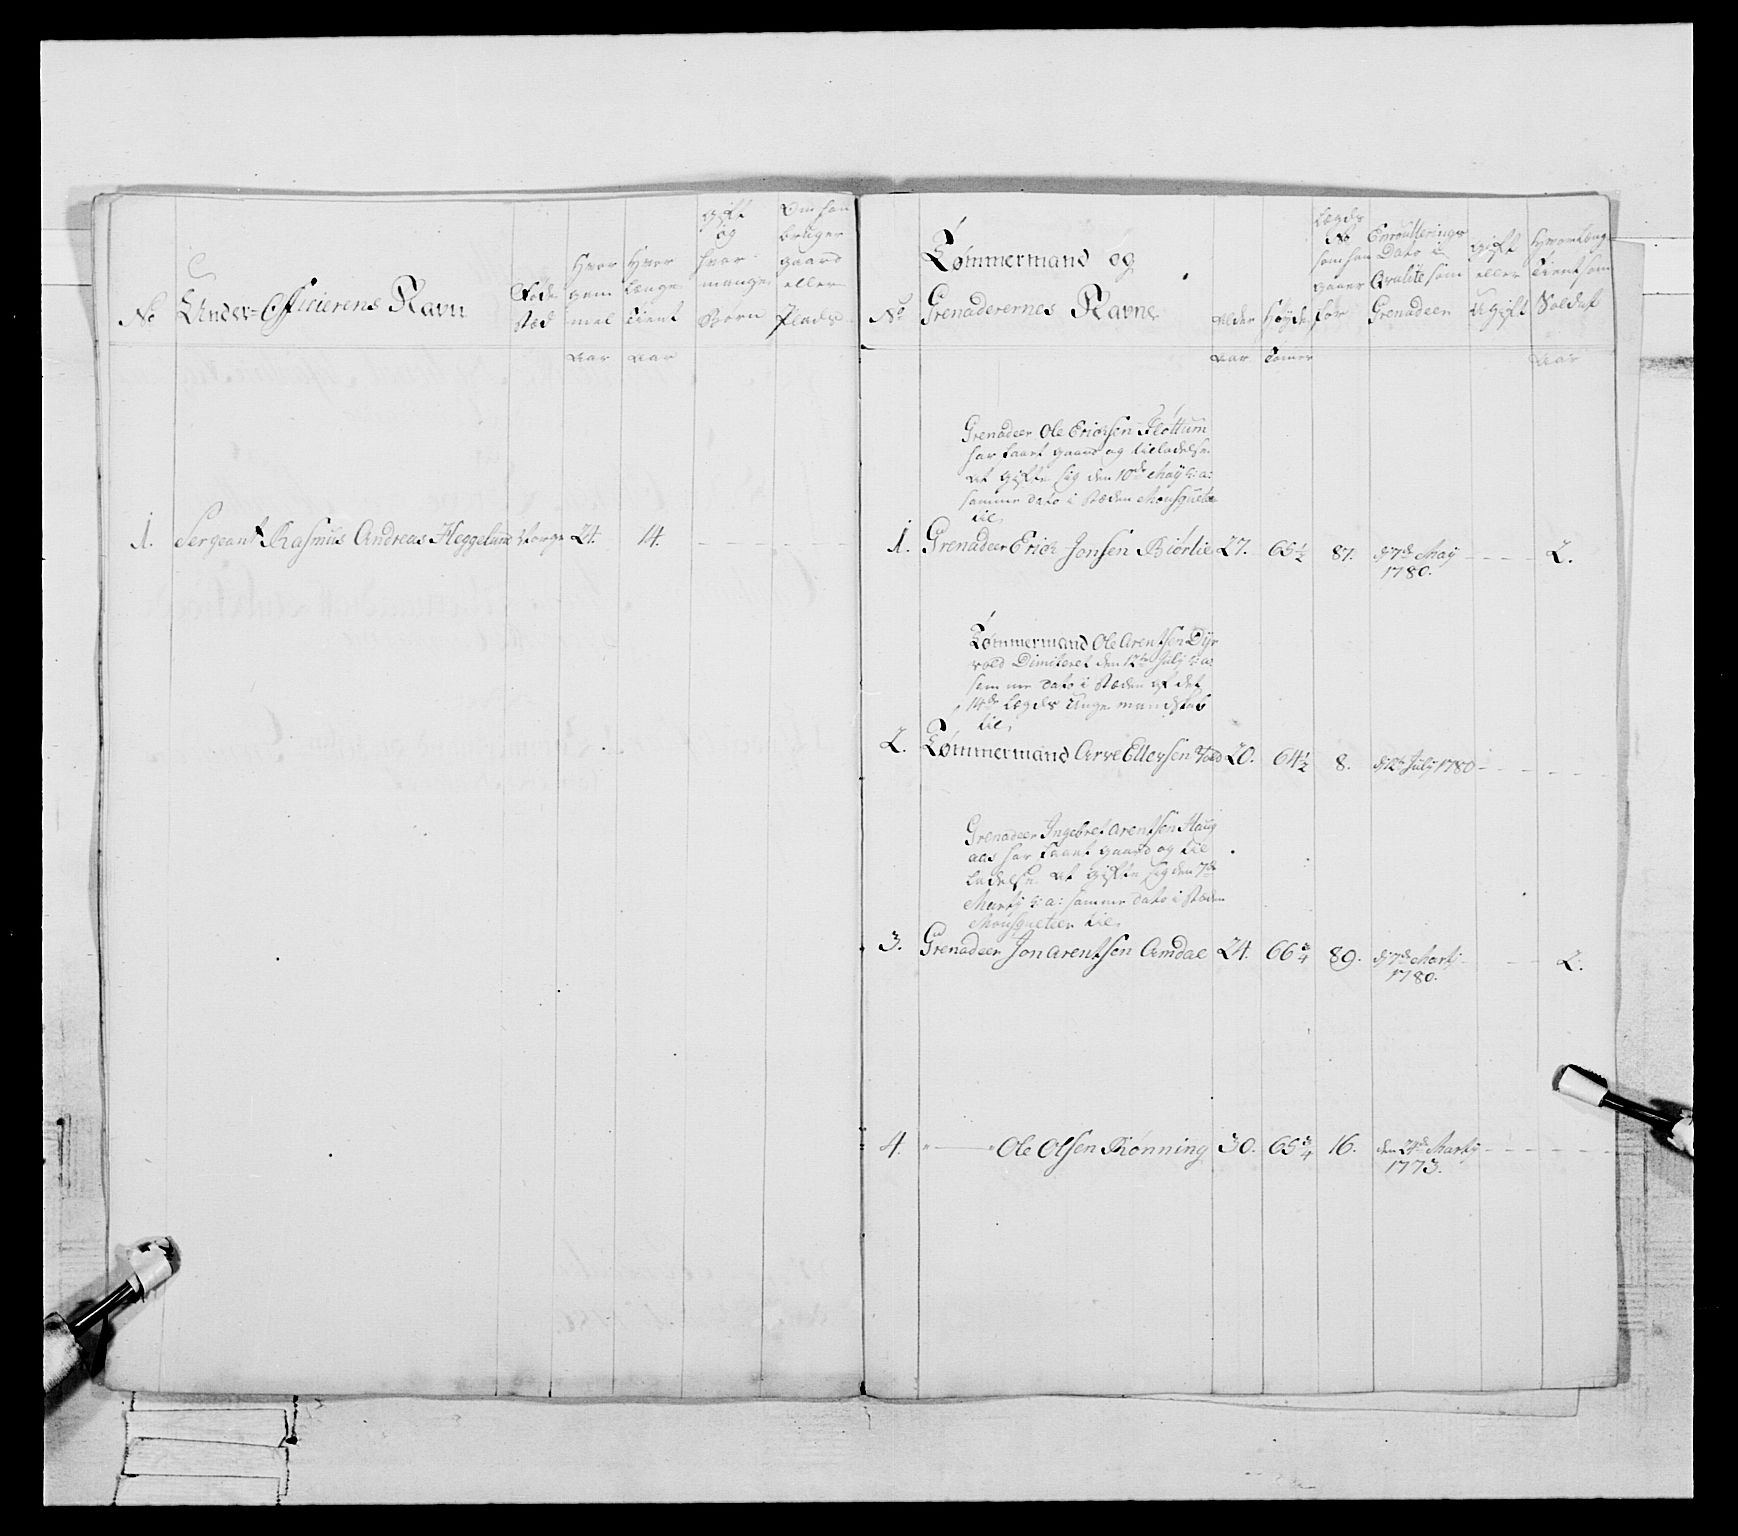 No
Under-Officierens Navn
Føde
stæd
Hvor
gam
mel
Hvor
længe
tient
gift
og
hvor
mange
Børn
Om han
bruger
gaard
eller
Plads
Aar Aar
1. Sergeant Rasmus Andreas Heggelund Norge 24. 14.
No
Tømmermand og
Grenaderernes Navne
Alder
Høyde
Lægds
No
som han
gaaer
for
Enroullerings
Dato i
Qvalite som
Grenadeer
gift
eller
ugift
Hvor længe
tient som
Soldat
Aar Tomer
Aar
Grenadeer Ole Erichsen Fløttum
har faaet gaard og tilladelse
at gifte sig den 10de May h: a:
samme dato i stæden Mousqueteer
til
1. Grenadeer Erich Jonsen Biørlie 27. 65½ 87. d 7de May
1780. 2.
Tømmermand Ole Arentsen Dyr
vold Dimiteret den 12te July h: a:
samme dato i stæden af det
14de Lægds unge mandskab
til
2. Tømmermand Arve Ellevsen Vold 20. 64½ 8. d 12te July 1780
Grenadeer Ingebret Arentsen Haug
aas har faaet gaard og til
ladelse at gifte sig den 7de
Martj h: a: samme dato i stæden
Mousqueteer til
3. Grenadeer Jon Arentsen Amdal 24. 66¾ 89. d 7de Martj
1780. 2.
4. " — " Ole Olsen Rønning 30. 65¾ 16. den 24de Martj
1773.